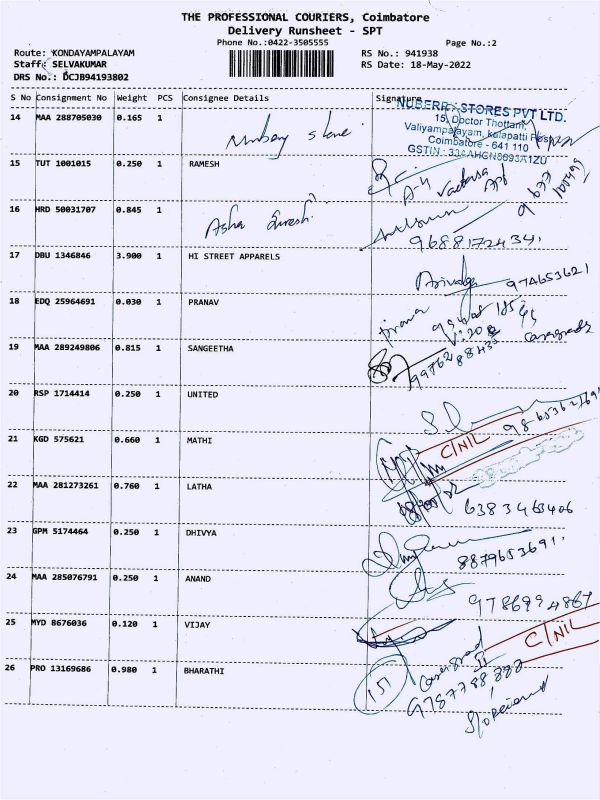 THE PROFESSIONAL COURIERS, Coimbatore
Delivery Runsheet - SPT
Phone No.:0422-3505555
Page No.:2
Route: KONDAYAMPALAYAM
RS No.: 941938
Staff: SELVAKUMAR
RS Date: 18-May-2022
DRS No.: DCJB94193802
S No Consignment No Weight PCS Consignee Details Signature
14 MAA 288705030 0.165 1
NUBERRY STORES PVT LTD.
15, Doctor Thottam,
Valiyampalayam, Kalapatti Post
Coimbatore - 641 110
15 TUT 1001015 0.250 1 RAMESH
16 HRD 50031707 0.845 1 Asha
9688172434
17 DBU 1346846 3.900 1 HI STREET APPARELS
974653621
18 EDQ 25964691 0.030 1 PRANAV
19 MAA 289249806 0.815 1 SANGEETHA
20 RSP 1714414 0.250 1 UNITED
21 KGD 575621 0.660 1 MATHI
C/NIL
22 MAA 281273261 0.760 1 LATHA
6383463406
23 GPM 5174464 0.250 1 DHIVYA
8879653691.
24 MAA 285076791 0.250 1 ANAND
9786994867
25 MYD 8676036 0.120 1 VIJAY
C/NIL
26 PRO 13169686 0.980 1 BHARATHI
151